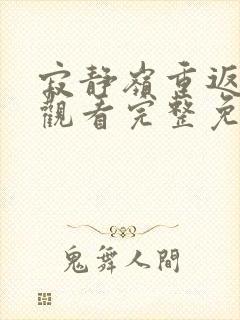 寂靜嶺重返
觀看完整免
鬼舞人間